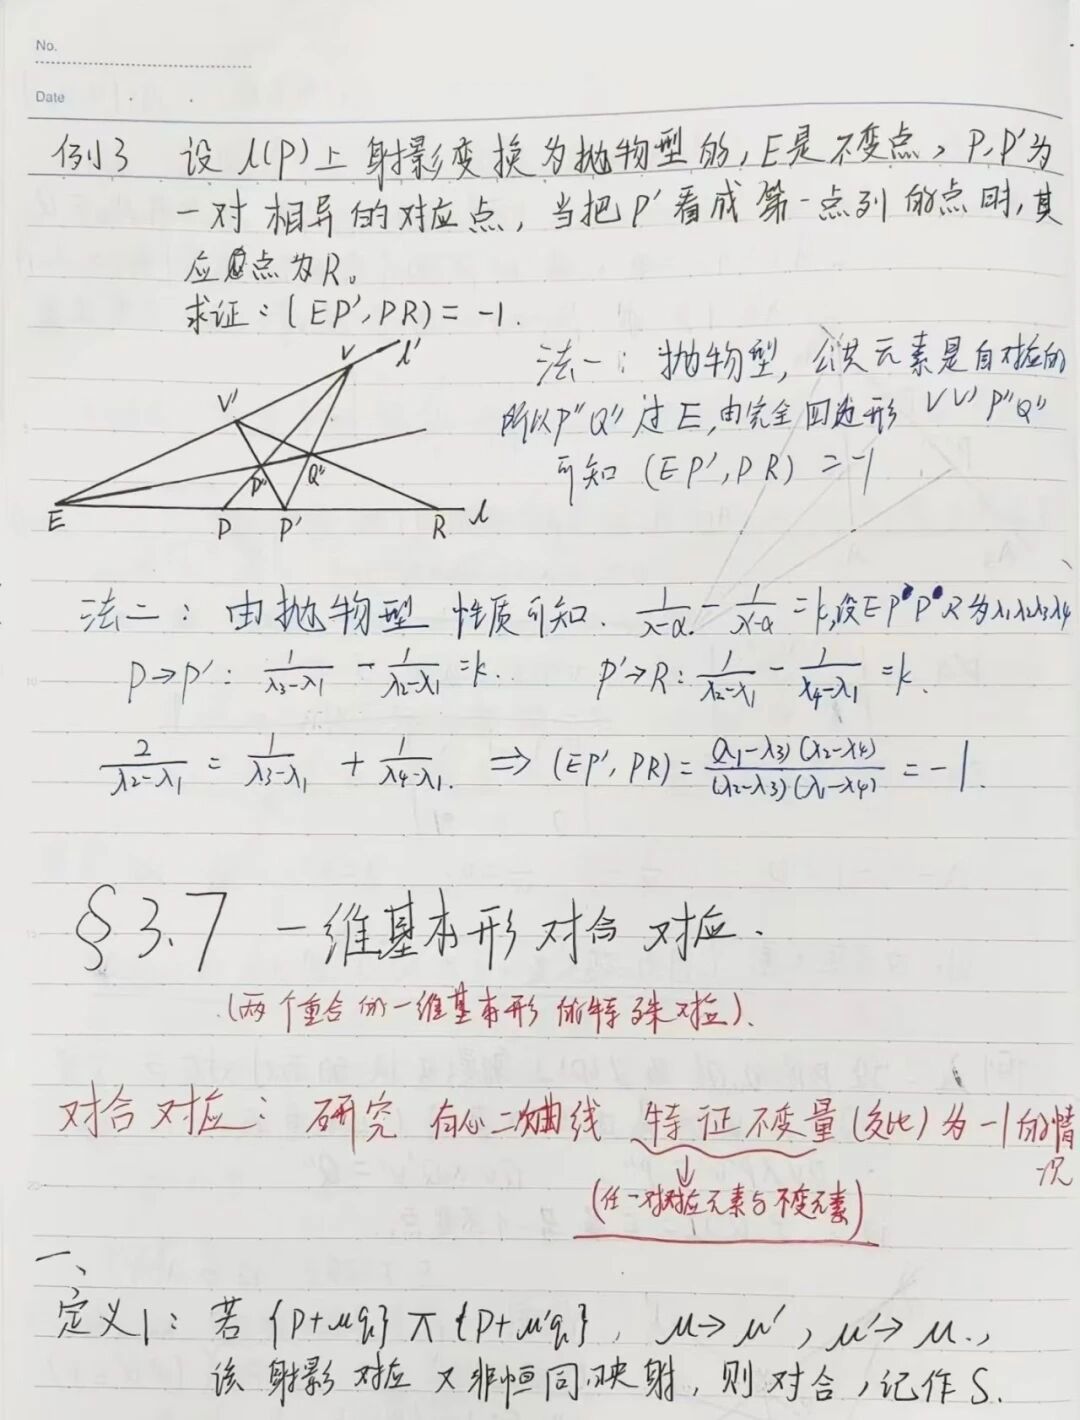 No.
Date
例3 设 l(P)上射影变换为抛物型的,E是不变点,P,P′为
一对相异的对应点,当把P′看成第一点列的点时,其
应点为R。
求证:(EP′,PR)=-1.
法一:抛物型,公共元素是自对应的
所以P″Q″过E,由完全四边形 VV′P″Q″
可知 (EP′,PR)=-1
V l′
V′
P″ Q″
E P P′ R l
法二:由抛物型 性质可知. 1/(λ-α) - 1/(λ′-α) =k,设EP′PR为λ1λ2λ3λ4
P→P′: 1/(λ3-λ1) - 1/(λ2-λ1) =k. P′→R: 1/(λ2-λ1) - 1/(λ4-λ1) =k.
2/(λ2-λ1) = 1/(λ3-λ1) + 1/(λ4-λ1). ⇒ (EP′,PR)= (λ1-λ3)(λ2-λ4)/(λ2-λ3)(λ1-λ4) = -1.
§3.7 一维基本形对合对应.
(两个重合的一维基本形的特殊对应).
对合对应:研究 有心二次曲线 特征不变量(交比)为-1的情
况
(任一对对应元素与不变元素)
一、
定义1:若{P+μq}⊼{P+μ′q}, μ→μ′,μ′→μ.,
该射影对应又非恒同映射,则对合,记作S.